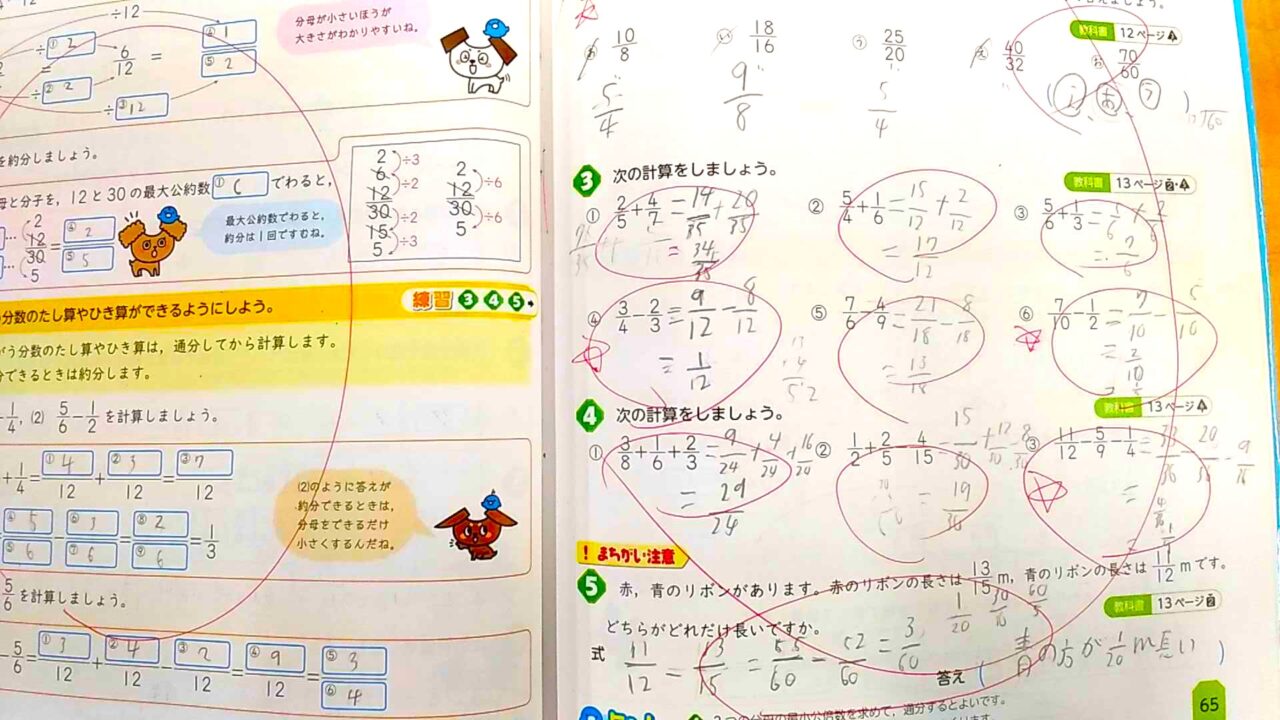 ÷12
÷① 2
6/12 =
④ 1
⑤ 2
÷② 2
÷③ 12
分母が小さいほうが
大きさがわかりやすいね。
を約分しましょう。
母と分子を，12と30の最大公約数① 6 でわると，
12/30 = ④ 2
⑤ 5
最大公約数でわると，
約分は1回ですむね。
2
6 ÷3
12 ÷2
30 ÷2
15 ÷3
5
2
12 ÷6
30 ÷6
5
分数のたし算やひき算ができるようにしよう。
練習 3 4 5
がう分数のたし算やひき算は，通分してから計算します。
できるときは約分します。
1/4，(2) 5/6 − 1/2 を計算しましょう。
+ 1/4 = ① 4/12 + ② 3/12 = ③ 7/12
④ 5/⑤ 6 − ⑥ 3/⑦ 6 = ⑧ 2/⑨ 6 = 1/3
(2)のように答えが
約分できるときは，
分母をできるだけ
小さくするんだね。
5/6 を計算しましょう。
− 5/6 = ① 3/12 + ② 4/12 − ③ 2/12 = ④ 9/12 = ⑤ 3/⑥ 4
教科書 12ページ
あ 10/8 い 18/16 う 25/20 え 40/32 お 70/60
5/4 9/8 5/4
( え あ う )
3 次の計算をしましょう。
教科書 13ページ
① 2/5 + 4/7 = 14/35 + 20/35
= 34/35
② 5/4 + 1/6 = 15/12 + 2/12
= 17/12
③ 5/6 + 1/3 = 5/6 + 2/6
= 7/6
④ 3/4 − 2/3 = 9/12 − 8/12
= 1/12
⑤ 7/6 − 4/9 = 21/18 − 8/18
= 13/18
⑥ 7/10 − 1/2 = 7/10 − 5/10
= 2/10
4 次の計算をしましょう。
教科書 13ページ
① 3/8 + 1/6 + 2/3 = 9/24 + 4/24 + 16/24
= 29/24
② 1/2 + 2/5 − 4/15 = 15/30 + 12/30 − 8/30
= 19/30
③ 11/12 − 5/9 − 1/4 = 33/36 − 20/36 − 9/36
= 4/36
! まちがい注意
5 赤，青のリボンがあります。赤のリボンの長さは 13/15 m，青のリボンの長さは 11/12 mです。
どちらがどれだけ長いですか。
教科書 13ページ
式 11/12 = 13/15 = 55/60 − 52/60 = 3/60
1/20
答え ( 青の方が 1/20 m長い )
65